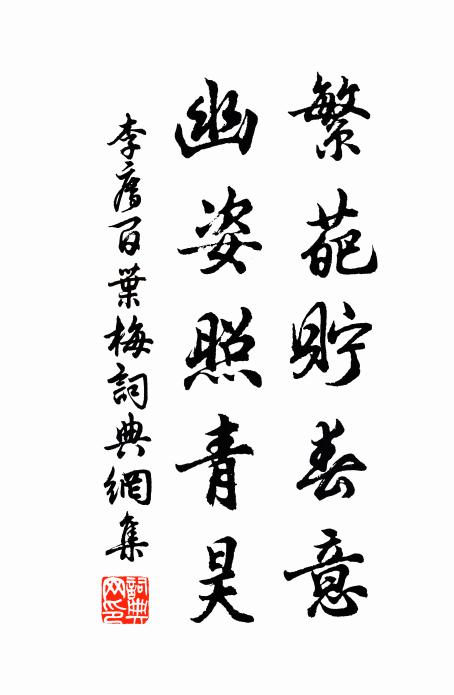 繁葩貯春意
幽姿照青昊
李廌百葉梅詞典網集
詞典网印